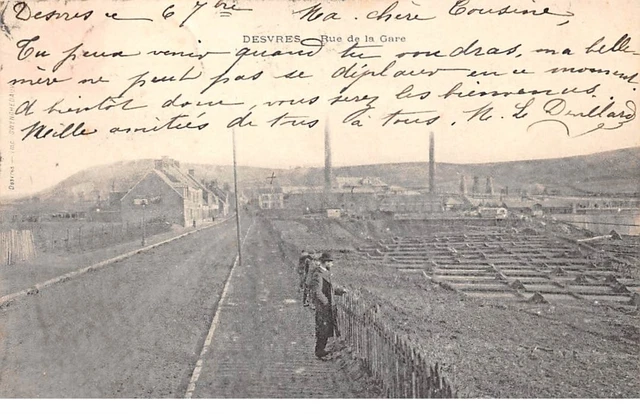 Desvres ce 6 7bre Ma chère Cousine,
DESVRES Rue de la Gare
Tu peux venir quand tu voudras, ma belle-
mère ne peut pas se déplacer en ce moment.
A bientôt donc, vous serez les bienvenus.
Mille amitiés de tous à tous, M. L